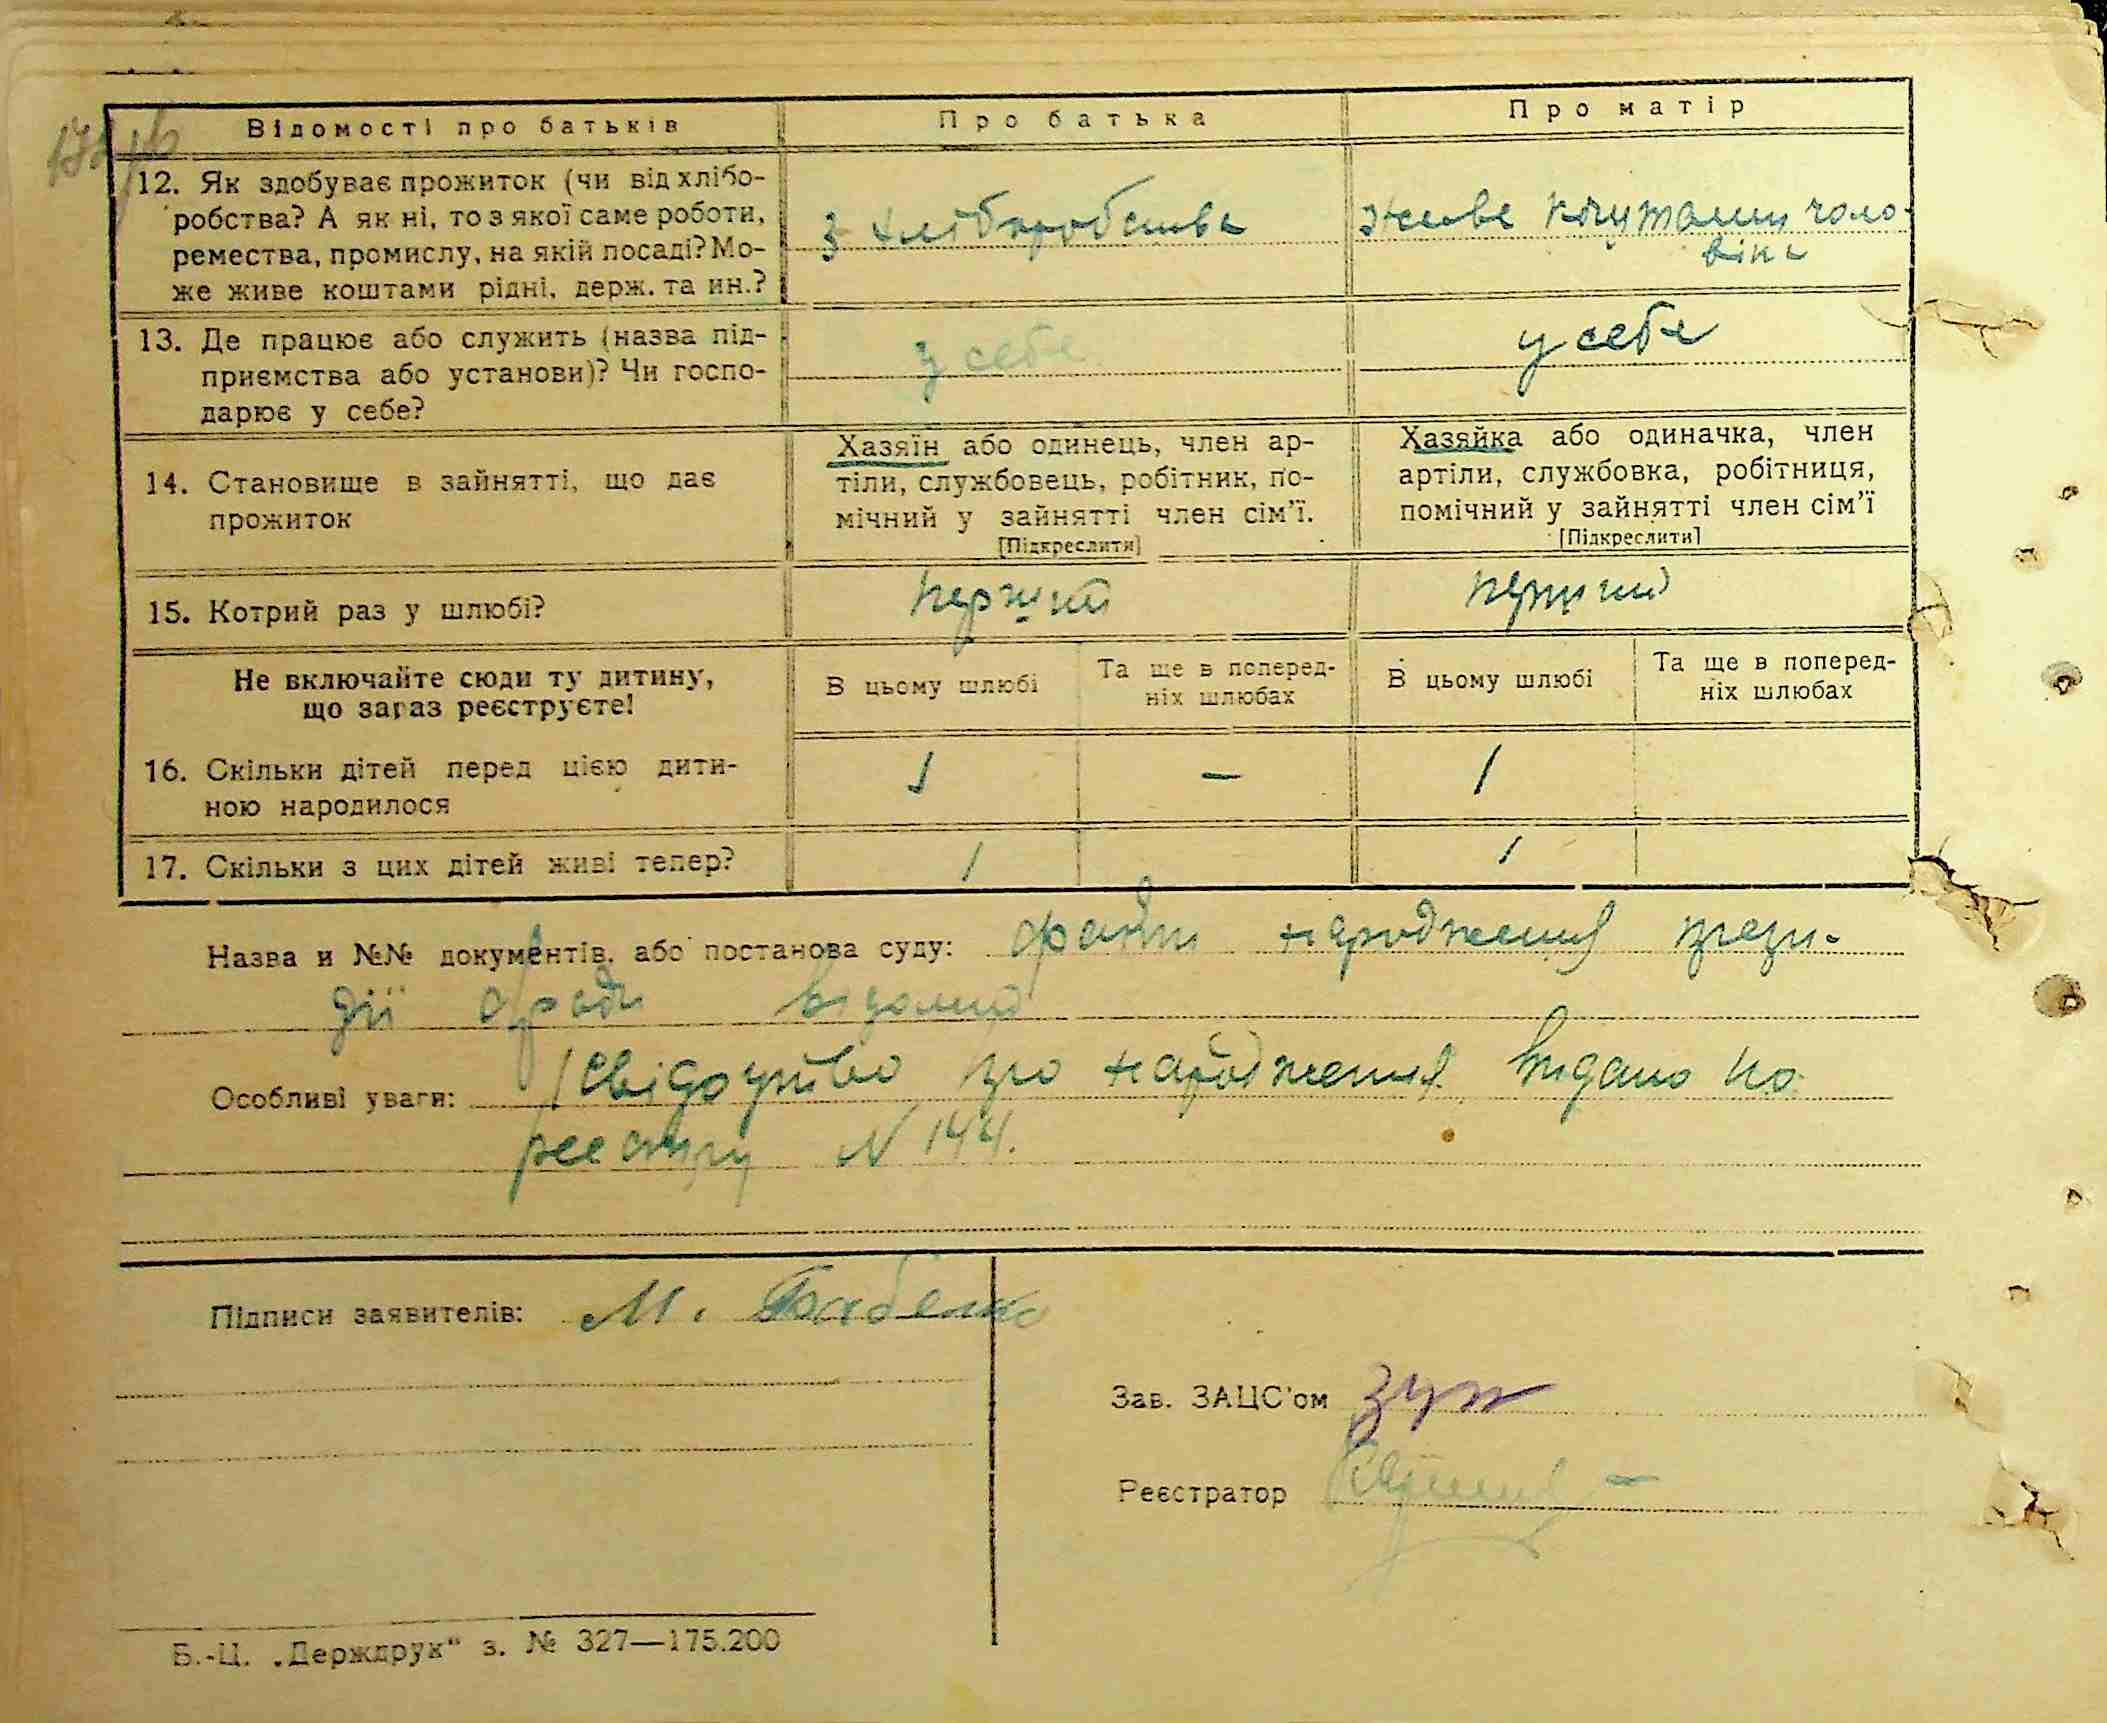 Відомості про батьків
Про батька
Про матір
12. Як здобуває прожиток (чи від хлібо-
робства? А як ні, то з якої саме роботи,
ремества, промислу, на якій посаді? Мо-
же живе коштами рідні, держ. та ин.?
З хліборобства
живе коштами чоло-
віка
13. Де працює або служить (назва під-
приємства або установи)? Чи госпо-
дарює у себе?
у себе
у себе
14. Становище в зайнятті, що дає
прожиток
Хазяїн або одинець, член ар-
тіли, службовець, робітник, по-
мічний у зайнятті член сім'ї.
[Підкреслити]
Хазяйка або одиначка, член
артіли, службовка, робітниця,
помічний у зайнятті член сім'ї
[Підкреслити]
15. Котрий раз у шлюбі?
перший
перший
Не включайте сюди ту дитину,
що зараз реєструєте!
В цьому шлюбі
Та ще в поперед-
ніх шлюбах
В цьому шлюбі
Та ще в поперед-
ніх шлюбах
16. Скільки дітей перед цією дити-
ною народилося
1
—
1
17. Скільки з цих дітей живі тепер?
1
1
Назва и №№ документів, або постанова суду: факт народження прези-
дії сради відомий
Особливі уваги: Свідоцтво про народження видано по
реєстру N 144.
Підписи заявителів: М. Бабенко
Зав. ЗАЦС'ом
Реєстратор
Б.-Ц. „Держдрук“ з. № 327—175.200